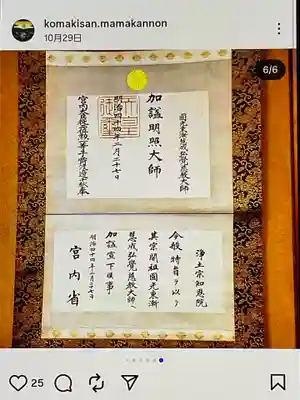 komakisan.mamakannon
10月29日
6/6
圓光東漸慧成弘覺慈教大師
加諡明照大師
明治四十四年二月二十七日
浄土宗知恩院
今般特旨ヲ以テ
其宗開祖圓光東漸
慧成弘覺慈教大師ヘ
加諡宣下候事
明治四十四年二月二十七日
宮内省
25